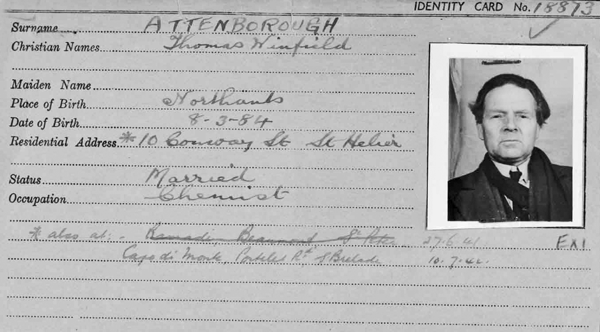 IDENTITY CARD No. 18813
Surname ATTENBOROUGH
Christian Names Thomas Winfield
Maiden Name
Place of Birth Northants
Date of Birth 8-3-84
Residential Address *10 Conway St St Helier
Status Married
Occupation Chemist
* also at:- Beaumont St Peter 27.6.41 EX1
Casa di Monte, Portelet Rd St Brelade 10.7.42.